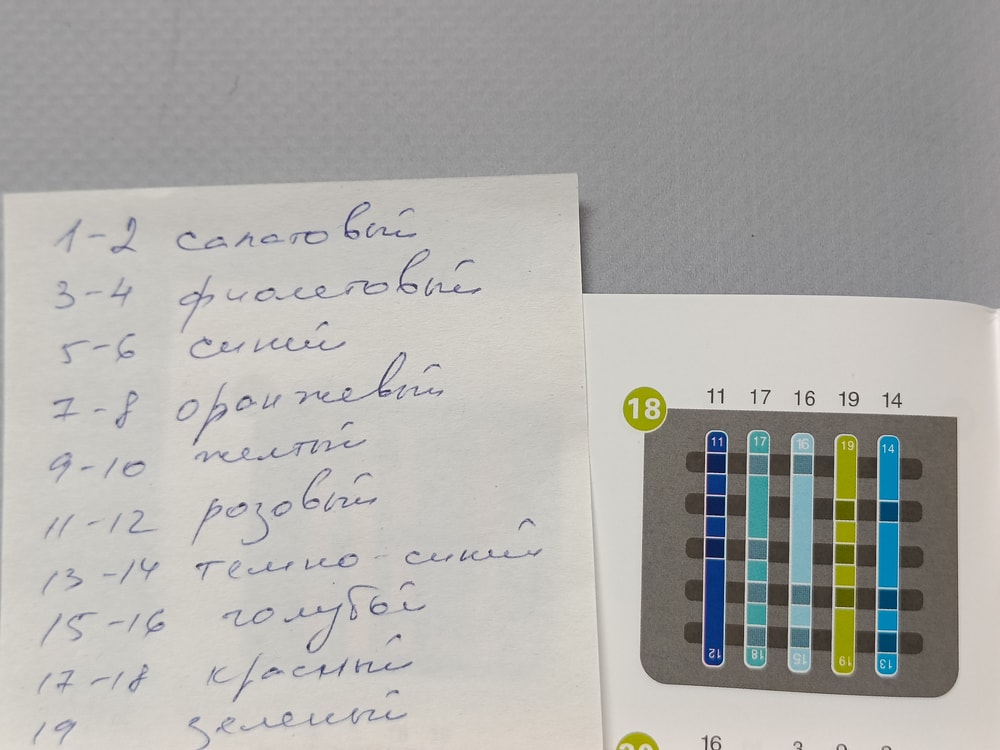 1-2 салатовый
3-4 фиолетовый
5-6 синий
7-8 оранжевый
9-10 желтый
11-12 розовый
13-14 темно-синий
15-16 голубой
17-18 красный
19 зеленый
18
11 17 16 19 14
11 17 16 19 14
12 18 15 19 13
20
16 3 9